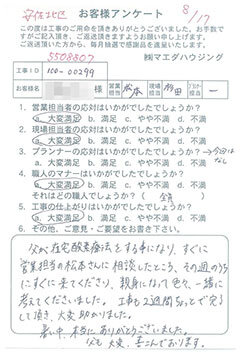 安佐北区 8/17
お客様アンケート
この度は工事のご用命を頂きありがとうございました。お手数で
すがご記入頂き、ご返送頂きますようお願い申し上げます。
ご返送頂いた方から、毎月抽選で感謝品を進呈いたします。
5508807 ㈱マエダハウジング
工事ID 100-00299
お客様名 様 営業担当 松本 現場担当 プランナー担当 ー
1. 営業担当者の応対はいかがでしたでしょうか?
a. 大変満足 b. 満足 c. やや不満 d. 不満
2. 現場担当者の応対はいかがでしたでしょうか?
a. 大変満足 b. 満足 c. やや不満 d. 不満
3. プランナーの応対はいかがでしたでしょうか? →今回はなし
a. 大変満足 b. 満足 c. やや不満 d. 不満
4. 職人のマナーはいかがでしたでしょうか?
a. 大変満足 b. 満足 c. やや不満 d. 不満
それはどの職人でしょうか?( 全員 )
5. 工事の仕上がりはいかがでしたでしょうか?
a. 大変満足 b. 満足 c. やや不満 d. 不満
6. その他、ご意見・ご要望をお書き下さい。
父が在宅酸素療法をする事になり、すぐに
営業担当の松本さんに相談したところ、その週のうち
にすぐに来てくださり、親身になって色々、一緒に
考えてくださいました。工事も2週間ちょっとで完了
して頂き、大変助かりました。
暑い中、本当にありがとうございました。
父も大変、喜こんでおります。